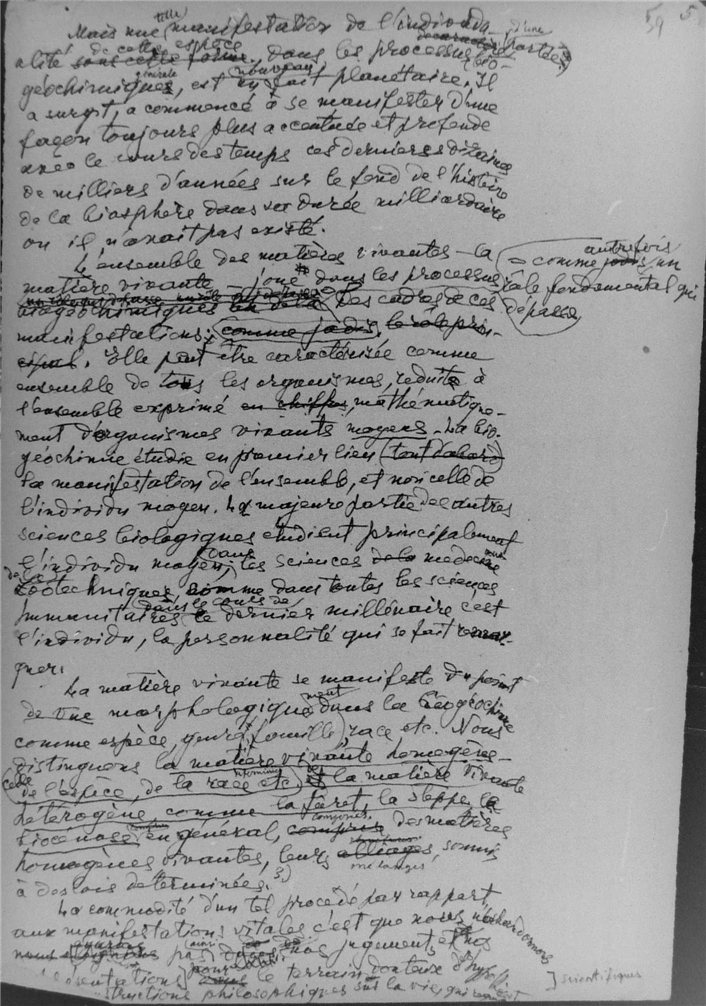 59 5
Mais une telle manifestation de l'individu-
alité sous cette forme, de cette espèce dans les processus bio-
géochimiques, est un nouveau fait planétaire. Il
a surgit, a commencé à se manifester d'une
façon toujours plus accentuée et profonde
avec le cours des temps ces derniers dizaines
de milliers d'années sur le fond de l'histoire
de la biosphère dans sa durée milliardaire
où il n'avait pas existé.
L'ensemble des matières vivantes – la
matière vivante – joue dans les processus
– comme jadis autrefois un
rôle fondamental qui
dépasse
biogéochimiques les cadres de ces
manifestations; comme jadis le rôle prin-
cipal. Elle peut être caractérisée comme
ensemble de tous les organismes, réduite à
l'ensemble exprimé en chiffres, mathématique-
ment d'organismes vivants moyens. La bio-
géochimie étudie en premier lieu (tout d'abord)
la manifestation de l'ensemble, et non celle de
l'individu moyen. La majeure partie des autres
sciences biologiques etudient principalement
l'individu moyen; dans les sciences de la medecine
zootechniques, comme dans toutes les sciences
humanitaires dans le cours de le dernier millénaire c'est
l'individu, la personnalité qui se fait remar-
quer.
La matière vivante se manifeste du point
de vue morphologique dans la biogéochimie
comme espèce, genre (famille), race etc. Nous
distinguons la matière vivante homogène –
celle de l'espèce, de la race etc. et la matière vivante
hétérogène, comme la forêt, la steppe, la
biocénose en général, compris des matières
homogènes vivantes, leurs alliages soumis
mélanges
à des lois déterminées. 3)
La commodité d'un tel procédé par rapport
aux manifestations vitales c'est que nous n'abandonnons
pas dans nos jugements et nos
le terrain douteux d'hypo
] scientifiques
constructions philosophiques sur la vie, qui